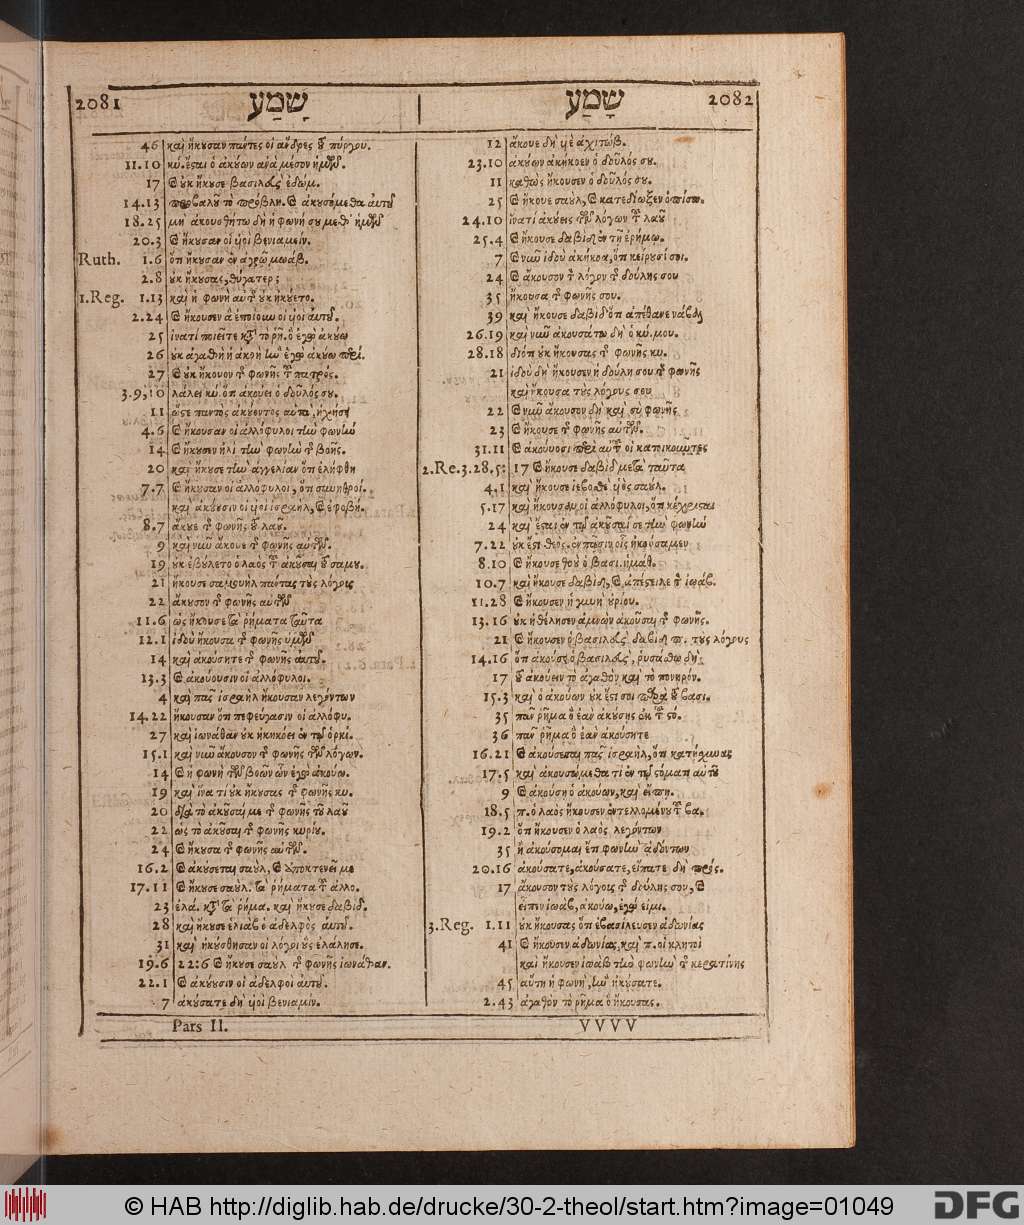 2081 שָׁמַע
46 καὶ ἤκυσαν πάντες οἱ ἄνδρες ȣ͂ πύργου.
11.10 κύ. ἔςαι ὁ ἀκύων ἀνὰ μέσον ἡμῶν.
17 Ȣ̓κ ἤκυσε βασιλεὺς ἐδώμ.
14.13 ἀκυσόμεθα αὐτȣ͂
18.25 μὴ ἀκουσθήτω δὴ ἡ φωνή συ μεθ' ἡμῶν
20.3 ἤκυσαν οἱ υἱοὶ βενιαμείν.
Ruth. 1.6 ὅτι ἤκυσαν ἐν ἀγρῷ μωάβ.
2.8 ȣ̓κ ἤκυσας, θύγατερ;
1.Reg. 1.13 καὶ ἡ φωνὴ αὐτῆς ȣ̓κ ἠκύετο.
2.24 ἤκουσεν ἃ ἐποίουν οἱ υἱοὶ αὐτȣ͂.
25 ἱνατί ποιεῖτε κτ̀ τὸ ῥῆ. ὃ ἐγὼ ἀκύω
26 ȣ̓κ ἀγαθὴ ἡ ἀκοὴ ἣν ἐγὼ ἀκύω περί.
27 ȣ̓κ ἤκουον τ͂ φωνῆς τ͂ πατρός.
3.9,10 λάλει κύ. ὅτι ἀκούει ὁ δοῦλός συ.
11 ὥςε παντὸς ἀκύοντος αὐτὰ, ἠχήσει
4.6 ἤκουσαν οἱ ἀλλόφυλοι τὴν φωνὴν
14 ἤκυσεν ἡλὶ τὴν φωνὴν τ͂ βοῆς.
20 καὶ ἤκυσε τὴν ἀγγελίαν ὅτι ἐλήφθη
7.7 ἤκυσαν οἱ ἀλλόφυλοι, ὅτι συνηθροί.
καὶ ἀκύυσιν οἱ υἱοὶ ἰσραὴλ, ἐφοβή.
8.7 ἄκυε τ͂ φωνῆς ȣ͂ λαȣ͂.
9 καὶ νῦν ἄκουε τ͂ φωνῆς αὐτῶν.
19 ȣ̓κ ἐβύλετο ὁ λαὸς τȣ͂ ἀκῦσαι ȣ͂ σαμυ.
21 ἤκουσε σαμουὴλ πάντας τὺς λόγυς
22 ἄκυσον τ͂ φωνῆς αὐτῶν
11.6 ὡς ἤκουσε τὰ ῥήματα ταῦτα
12.1 ἰδοὺ ἤκουσα τ͂ φωνῆς ὑμῶν
14 καὶ ἀκούσητε τ͂ φωνῆς αὐτȣ͂.
13.3 ἀκούουσιν οἱ ἀλλόφυλοι.
4 καὶ πᾶς ἰσραὴλ ἤκουσαν λεγόντων
14.22 ἤκουσαν ὅτι πεφεύγασιν οἱ ἀλλόφυ.
27 καὶ ἰωνάθαν ȣ̓κ ἠκηκόει ἐν τῷ ὁρκί.
15.1 καὶ νῦν ἄκουσον τ͂ φωνῆς τῶν λόγων.
14 ἡ φωνὴ τῶν βοῶν ὧν ἐγὼ ἀκούω.
19 καὶ ἵνα τί ȣ̓κ ἤκυσας τ͂ φωνῆς κυ.
20 διὰ τὸ ἀκῦσαί με τ͂ φωνῆς τȣ͂ λαȣ͂
22 ὡς τὸ ἀκῦσαι τ͂ φωνῆς κυρίȣ.
24 ἤκυσα τ͂ φωνῆς αὐτῶν.
16.2 ἀκύσεται σαὺλ, ἀποκτενεῖ με
17.11 ἤκυσε σαύλ. τὰ ῥήματα τȣ͂ ἀλλο.
23 ἐλά. κτ̀ τὰ ῥήμα. καὶ ἤκυσε δαβίδ.
28 καὶ ἤκυσε ἑλιὰβ ὁ ἀδελφὸς αὐτȣ͂.
31 καὶ ἠκύσθησαν οἱ λόγοι ȣ̔̀ς ἐλάλησε.
19.6 22:6 ἤκυσε σαὺλ τ͂ φωνῆς ἰωνάθαν.
22.1 ἀκύυσιν οἱ ἀδελφοὶ αὐτȣ͂.
7 ἀκύσατε δὴ υἱοὶ βενιαμίν.
Pars II.
שָׁמַע 2082
12 ἄκουε δὴ υἱὲ ἀχιτώβ.
23.10 ἀκύων ἀκήκοεν ὁ δοῦλός συ.
11 καθὼς ἤκουσεν ὁ δοῦλός συ.
25 ἤκουε σαὺλ, κατεδίωξεν ὀπίσω.
24.10 ἱνατί ἀκύεις τῶν λόγων τȣ͂ λαȣ͂
25.4 ἤκουσε δαβὶδ ἐν τῇ ἐρήμῳ.
7 νῦν ἰδοὺ ἀκήκοα, ὅτι κείρυσί σοι.
24 ἄκουσον τ͂ λόγον τ͂ δούλης σου
35 ἤκουσα τ͂ φωνῆς σου.
39 καὶ ἤκουσε δαβὶδ ὅτι ἀπέθανε νάβαλ
26.19 καὶ νῦν ἀκουσάτω δὴ ὁ κύ. μου.
28.18 διότι ȣ̓κ ἤκουσας τ͂ φωνῆς κυ.
21 ἰδοὺ δὴ ἤκουσεν ἡ δούλη σου τ͂ φωνῆς
καὶ ἤκουσα τὺς λόγους σου
22 νῦν ἄκουσον δὴ καὶ σὺ φωνῆς
23 ἤκουσε τ͂ φωνῆς αὐτῶν.
31.11 ἀκούουσι περὶ αὐτȣ͂ οἱ κατοικοῦντες
2.Re.3.28.5: 17 ἤκουσε δαβὶδ μετὰ ταῦτα
4.1 καὶ ἤκουσε ἰεβοσθὲ υἱὸς σαύλ.
5.17 καὶ ἤκουσαν οἱ ἀλλόφυλοι, ὅτι κέχρισται
24 καὶ ἔςαι ἐν τῷ ἀκῦσαί σε τὴν φωνὴν
7.22 ȣ̓κ ἔςι θεὸς. ἐν πᾶσιν οἷς ἠκούσαμεν
8.10 ἤκουσε θοὺ ὁ βασι. ἡμάθ.
10.7 καὶ ἤκουσε δαβὶδ, ἀπέςειλε τ͂ ἰωάβ.
11.28 ἤκουσεν ἡ γυνὴ ȣ̓ρίου.
13.16 ȣ̓κ ἠθέλησεν ἀμνὼν ἀκοῦσαι τ͂ φωνῆς.
21 ἤκουσεν ὁ βασιλεὺς δαβὶδ π. τὺς λόγους
14.16 ὅτι ἀκούσει ὁ βασιλεὺς, ῥυσάσθω δὴ.
17 ȣ͂ ἀκούειν τὸ ἀγαθὸν καὶ τὸ πονηρόν.
15.3 καὶ ὁ ἀκούων ȣ̓κ ἔςι σοι παρὰ ȣ͂ βασι.
35 πᾶν ῥῆμα ὃ ἐὰν ἀκύσῃς
36 πᾶν ῥῆμα ὃ ἐὰν ἀκούσητε
16.21 ἀκούσεται πᾶς ἰσραὴλ, ὅτι κατῄχυνας
17.5 καὶ ἀκουσώμεθα τί ἐν τῷ ςόματι αὐτȣ͂
9 ἀκούσῃ ὁ ἀκούων, καὶ εἴπῃ.
18.5 π. ὁ λαὸς ἤκουσεν ἐντελλομένυ τȣ͂ βα.
19.2 ὅτι ἤκουσεν ὁ λαὸς λεγόντων
35 ἢ ἀκούσομαι ἔτι φωνὴν ᾀδόντων
20.16 ἀκούσατε, ἀκούσατε, εἴπατε δὴ πρός.
17 ἄκουσον τὺς λόγους τ͂ δούλης σου,
εἶπεν ἰωάβ, ἀκούω, ἐγώ εἰμι.
3.Reg. 1.11 ȣ̓κ ἤκουσας ὅτι ἐβασίλευσεν ἀδωνίας
41 ἤκουσεν ἀδωνίας, καὶ π. οἱ κλητοὶ
καὶ ἤκουσεν ἰωὰβ τὴν φωνὴν τ͂ κερατίνης
45 αὕτη ἡ φωνὴ, ἣν ἠκύσατε.
2.43 ἀγαθὸν τὸ ῥῆμα ὃ ἤκουσας.
VVVV
© HAB http://diglib.hab.de/drucke/30-2-theol/start.htm?image=01049
DFG